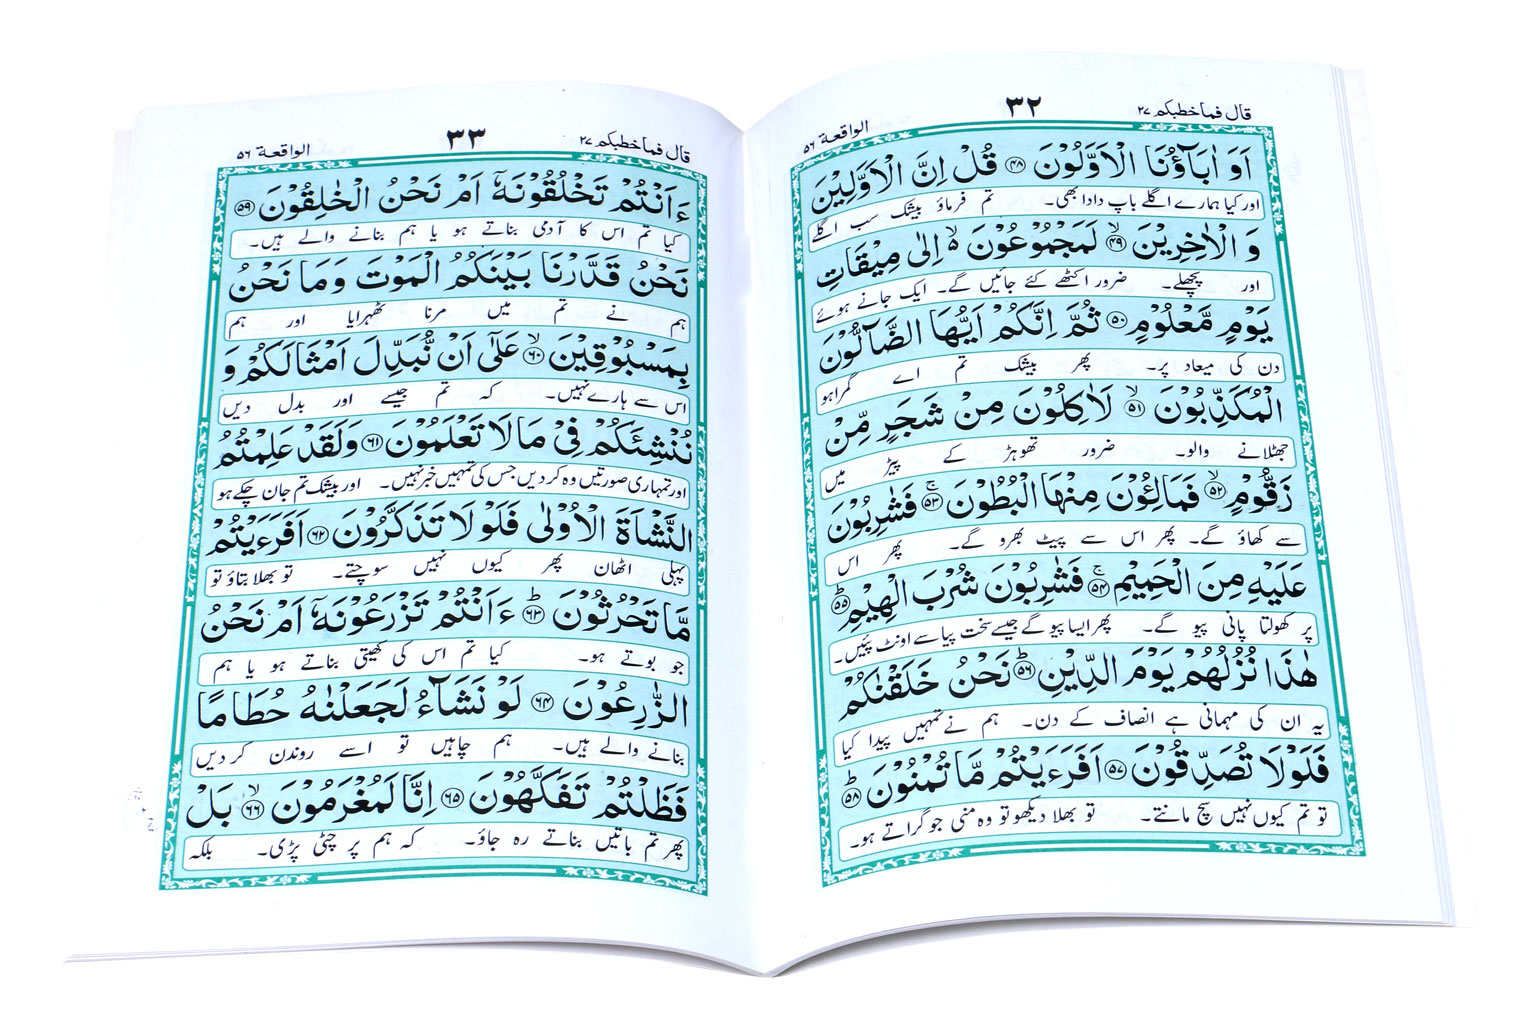 قال فماخطبکم ٢٧
٣٢
الواقعة ٥٦
اَوَ اٰبَآؤُنَا الْاَوَّلُوْنَ ﴿۴۸﴾ قُلْ اِنَّ الْاَوَّلِيْنَ
اور کیا ہمارے اگلے باپ دادا بھی۔ تم فرماؤ بیشک سب اگلے
وَ الْاٰخِرِيْنَ ﴿۴۹﴾ۙ لَمَجْمُوْعُوْنَ ەۙ اِلٰى مِيْقَاتِ
اور پچھلے۔ ضرور اکٹھے کئے جائیں گے۔ ایک جانے ہوئے
يَوْمٍ مَّعْلُوْمٍ ﴿۵۰﴾ ثُمَّ اِنَّكُمْ اَيُّهَا الضَّآلُّوْنَ
دن کی میعاد پر۔ پھر بیشک تم اے گمراہو
الْمُكَذِّبُوْنَ ﴿۵۱﴾ۙ لَاٰكِلُوْنَ مِنْ شَجَرٍ مِّنْ
جھٹلانے والو۔ ضرور تھوہڑ کے پیڑ میں
زَقُّوْمٍ ﴿۵۲﴾ۙ فَمَالِـُٔوْنَ مِنْهَا الْبُطُوْنَ ﴿۵۳﴾ۚ فَشٰرِبُوْنَ
سے کھاؤ گے۔ پھر اس سے پیٹ بھرو گے۔ پھر اس
عَلَيْهِ مِنَ الْحَمِيْمِ ﴿۵۴﴾ۚ فَشٰرِبُوْنَ شُرْبَ الْهِيْمِ ﴿۵۵﴾ؕ
پر کھولتا پانی پیو گے۔ پھر ایسا پیو گے جیسے سخت پیاسے اونٹ پئیں۔
هٰذَا نُزُلُهُمْ يَوْمَ الدِّيْنِ ﴿۵۶﴾ؕ نَحْنُ خَلَقْنٰكُمْ
یہ ان کی مہمانی ہے انصاف کے دن۔ ہم نے تمہیں پیدا کیا
فَلَوْلَا تُصَدِّقُوْنَ ﴿۵۷﴾ اَفَرَءَيْتُمْ مَّا تُمْنُوْنَ ﴿۵۸﴾ؕ
تو تم کیوں نہیں سچ مانتے۔ تو بھلا دیکھو تو وہ منی جو گراتے ہو۔
قال فماخطبکم ٢٧
٣٣
الواقعة ٥٦
ءَاَنْتُمْ تَخْلُقُوْنَهٗۤ اَمْ نَحْنُ الْخٰلِقُوْنَ ﴿۵۹﴾
کیا تم اس کا آدمی بناتے ہو یا ہم بنانے والے ہیں۔
نَحْنُ قَدَّرْنَا بَيْنَكُمُ الْمَوْتَ وَمَا نَحْنُ
ہم نے تم میں مرنا ٹھہرایا اور ہم
بِمَسْبُوْقِيْنَ ﴿۶۰﴾ۙ عَلٰٓى اَنْ نُّبَدِّلَ اَمْثَالَكُمْ وَ
اس سے ہارے نہیں۔ کہ تم جیسے اور بدل دیں
نُنْشِئَكُمْ فِيْ مَا لَا تَعْلَمُوْنَ ﴿۶۱﴾ وَلَقَدْ عَلِمْتُمُ
اور تمہاری صورتیں وہ کر دیں جس کی تمہیں خبر نہیں۔ اور بیشک تم جان چکے ہو
النَّشْاَةَ الْاُوْلٰى فَلَوْلَا تَذَكَّرُوْنَ ﴿۶۲﴾ اَفَرَءَيْتُمْ
پہلی اٹھان پھر کیوں نہیں سوچتے۔ تو بھلا بتاؤ تو
مَّا تَحْرُثُوْنَ ﴿۶۳﴾ؕ ءَاَنْتُمْ تَزْرَعُوْنَهٗۤ اَمْ نَحْنُ
جو بوتے ہو۔ کیا تم اس کی کھیتی بناتے ہو یا ہم
الزّٰرِعُوْنَ ﴿۶۴﴾ لَوْ نَشَآءُ لَجَعَلْنٰهُ حُطَامًا
بنانے والے ہیں۔ ہم چاہیں تو اسے روندن کر دیں
فَظَلْتُمْ تَفَكَّهُوْنَ ﴿۶۵﴾ اِنَّا لَمُغْرَمُوْنَ ﴿۶۶﴾ۙ بَلْ
پھر تم باتیں بناتے رہ جاؤ۔ کہ ہم پر چٹی پڑی۔ بلکہ